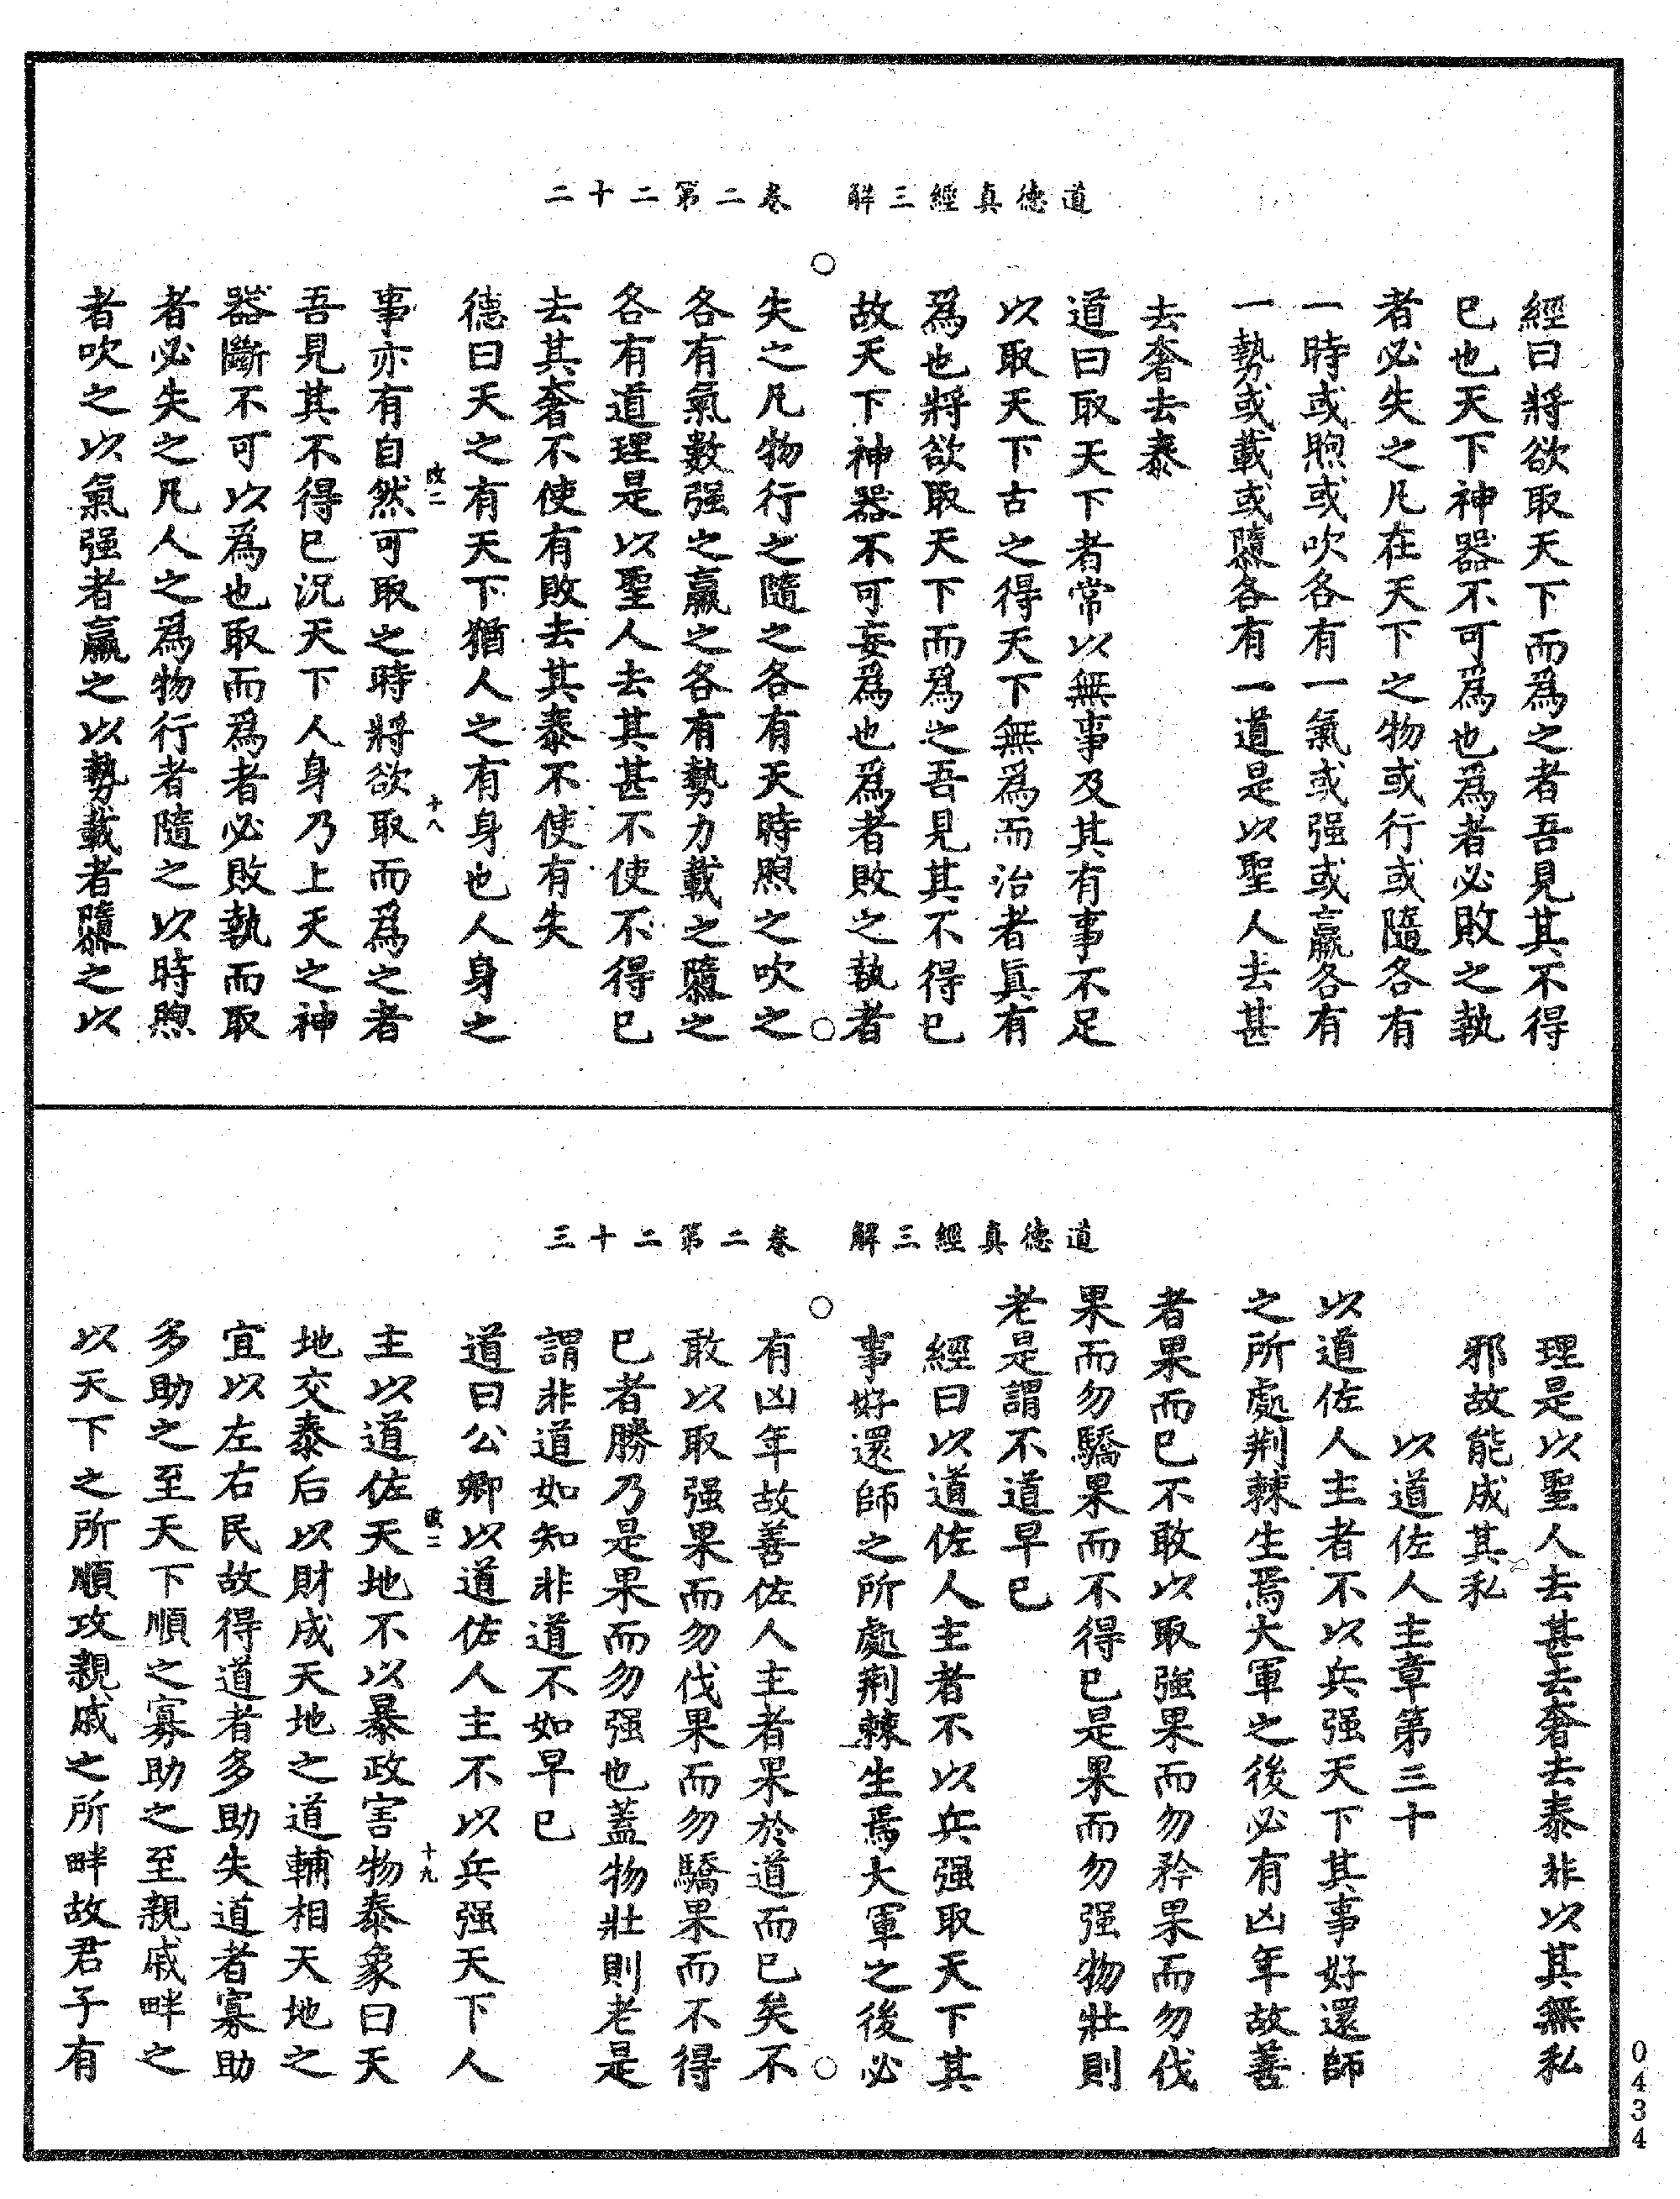 道德真經三解　卷二第二十二
經曰將欲取天下而爲之者吾見其不得
已也天下神器不可爲也爲者必敗之執
者必失之凡在天下之物或行或隨各有
一時或煦或吹各有一氣或强或羸各有
一勢或載或隳各有一道是以聖人去甚
去奢去泰
道曰取天下者常以無事及其有事不足
以取天下古之得天下無爲而治者眞有
爲也將欲取天下而爲之吾見其不得已
故天下神器不可妄爲也爲者敗之執者
失之凡物行之隨之各有天時煦之吹之
各有氣數强之羸之各有勢力載之隳之
各有道理是以聖人去其甚不使不得已
去其奢不使有敗去其泰不使有失
德曰天之有天下猶人之有身也人身之
改二
十八
事亦有自然可取之時將欲取而爲之者
吾見其不得已況天下人身乃上天之神
器斷不可以爲也取而爲者必敗執而取
者必失之凡人之爲物行者隨之以時煦
者吹之以氣强者羸之以勢載者隳之以
道德真經三解　卷二第二十三
理是以聖人去甚去奢去泰非以其無私
邪故能成其私
以道佐人主章第三十
以道佐人主者不以兵强天下其事好還師
之所處荆棘生焉大軍之後必有凶年故善
者果而已不敢以取強果而勿矜果而勿伐
果而勿驕果而不得已是果而勿强物壯則
老是謂不道早已
經曰以道佐人主者不以兵强取天下其
事好還師之所處荆棘生焉大軍之後必
有凶年故善佐人主者果於道而已矣不
敢以取强果而勿伐果而勿驕果而不得
已者勝乃是果而勿强也蓋物壯則老是
謂非道如知非道不如早已
道曰公卿以道佐人主不以兵强天下人
改二
十九
主以道佐天地不以暴政害物泰象曰天
地交泰后以財成天地之道輔相天地之
宜以左右民故得道者多助失道者寡助
多助之至天下順之寡助之至親戚畔之
以天下之所順攻親戚之所畔故君子有
0434